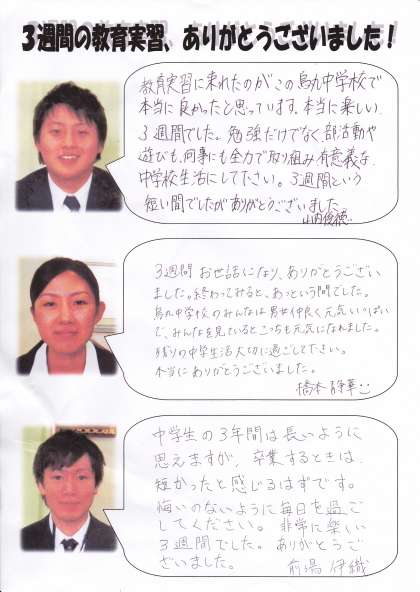 3週間の教育実習、ありがとうございました！
教育実習に来れたのがこの烏丸中学校で
本当に良かったと思っています。本当に楽しい
3週間でした。勉強だけでなく部活動や
遊びも、何事にも全力で取り組み有意義な
中学校生活にして下さい。3週間という
短い間でしたがありがとうございました。
山内俊徳
3週間お世話になり、ありがとうござい
ました。終わってみると、あっという間でした。
烏丸中学校のみんなは男女仲良く元気いっぱい
で、みんなを見ているとこっちも元気になれました。
残りの中学生活大切に過ごして下さい。
本当にありがとうございました。
橋本 静華
中学生の3年間は長いように
思えますが、卒業するときは
短かったと感じるはずです。
悔いのないように毎日を過ご
してください。非常に楽しい
3週間でした。ありがとうご
ざいました。 前場 伊織